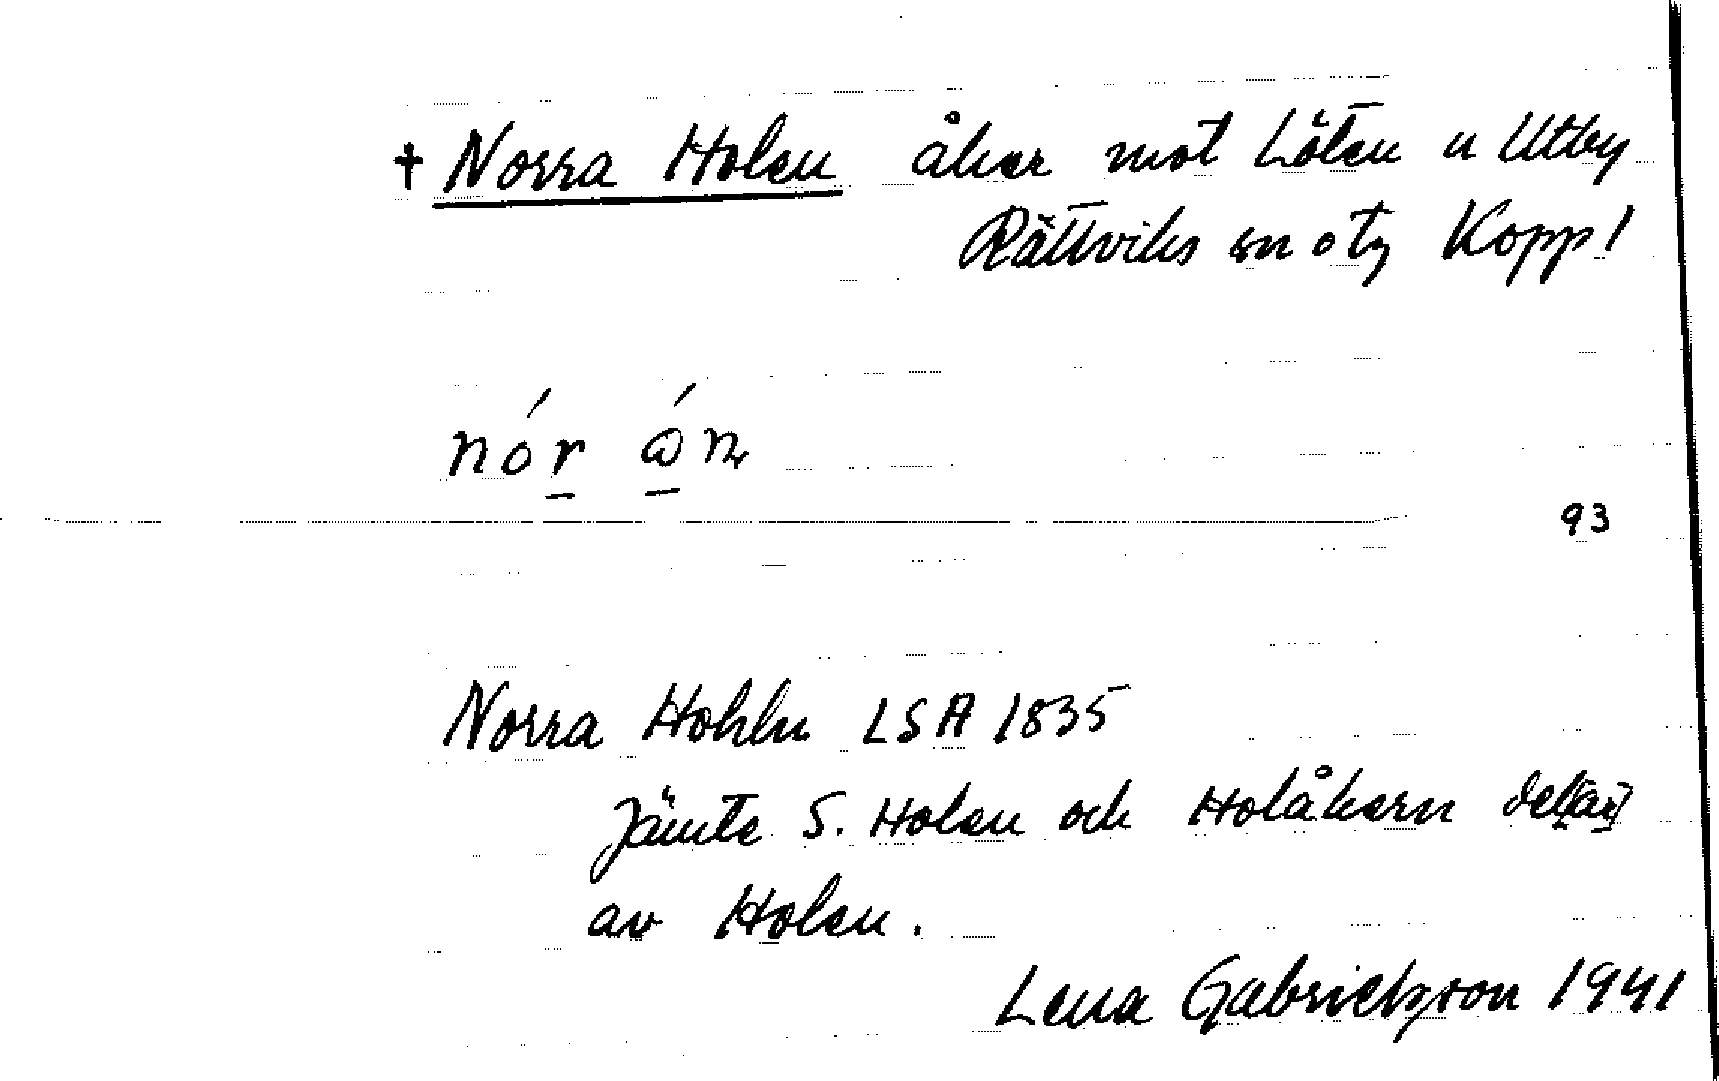 † Norra Holen åker mot Löten u Utby
Rättviks sn o tg Kopp l
nór
93
Norra Hohln LSA 1835
Jämte S. Holen och Holåkern del[ar]
av Holen.
Lena Gabrielsson 1941